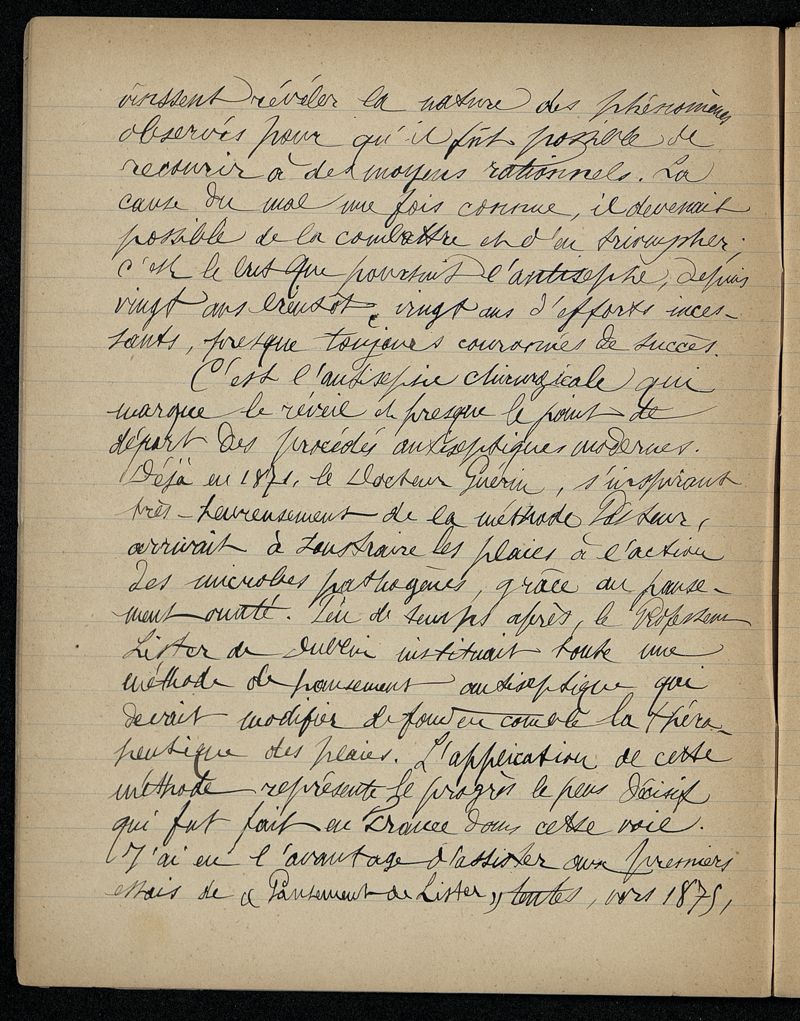 vinssent révéler la nature des phénomènes
observés pour qu'il fût possible de
recourir à des moyens rationnels. La
cause du mal une fois connue, il devenait
possible de la combattre et d'en triompher;
c'est le but que poursuit l'antisepsie, depuis
vingt ans bientôt, vingt ans d'efforts inces-
sants, presque toujours couronnés de succès.
C'est l'antisepsie chirurgicale qui
marque le réveil et presque le point de
départ des procédés antiseptiques modernes.
Déjà en 1871, le Docteur Guérin, s'inspirant
très-heureusement de la méthode Pasteur,
arrivait à soustraire les plaies à l'action
des microbes pathogènes, grâce au panse-
ment ouaté. Peu de temps après, le Professeur
Lister de Dublin instituait toute une
méthode de pansement antiseptique qui
devait modifier de fond en comble la théra-
peutique des plaies. L'application de cette
méthode représente le progrès le plus décisif
qui fut fait en France dans cette voie.
J'ai eu l'avantage d'assister aux premiers
essais de « Pansement de Lister » tentés, vers 1875,